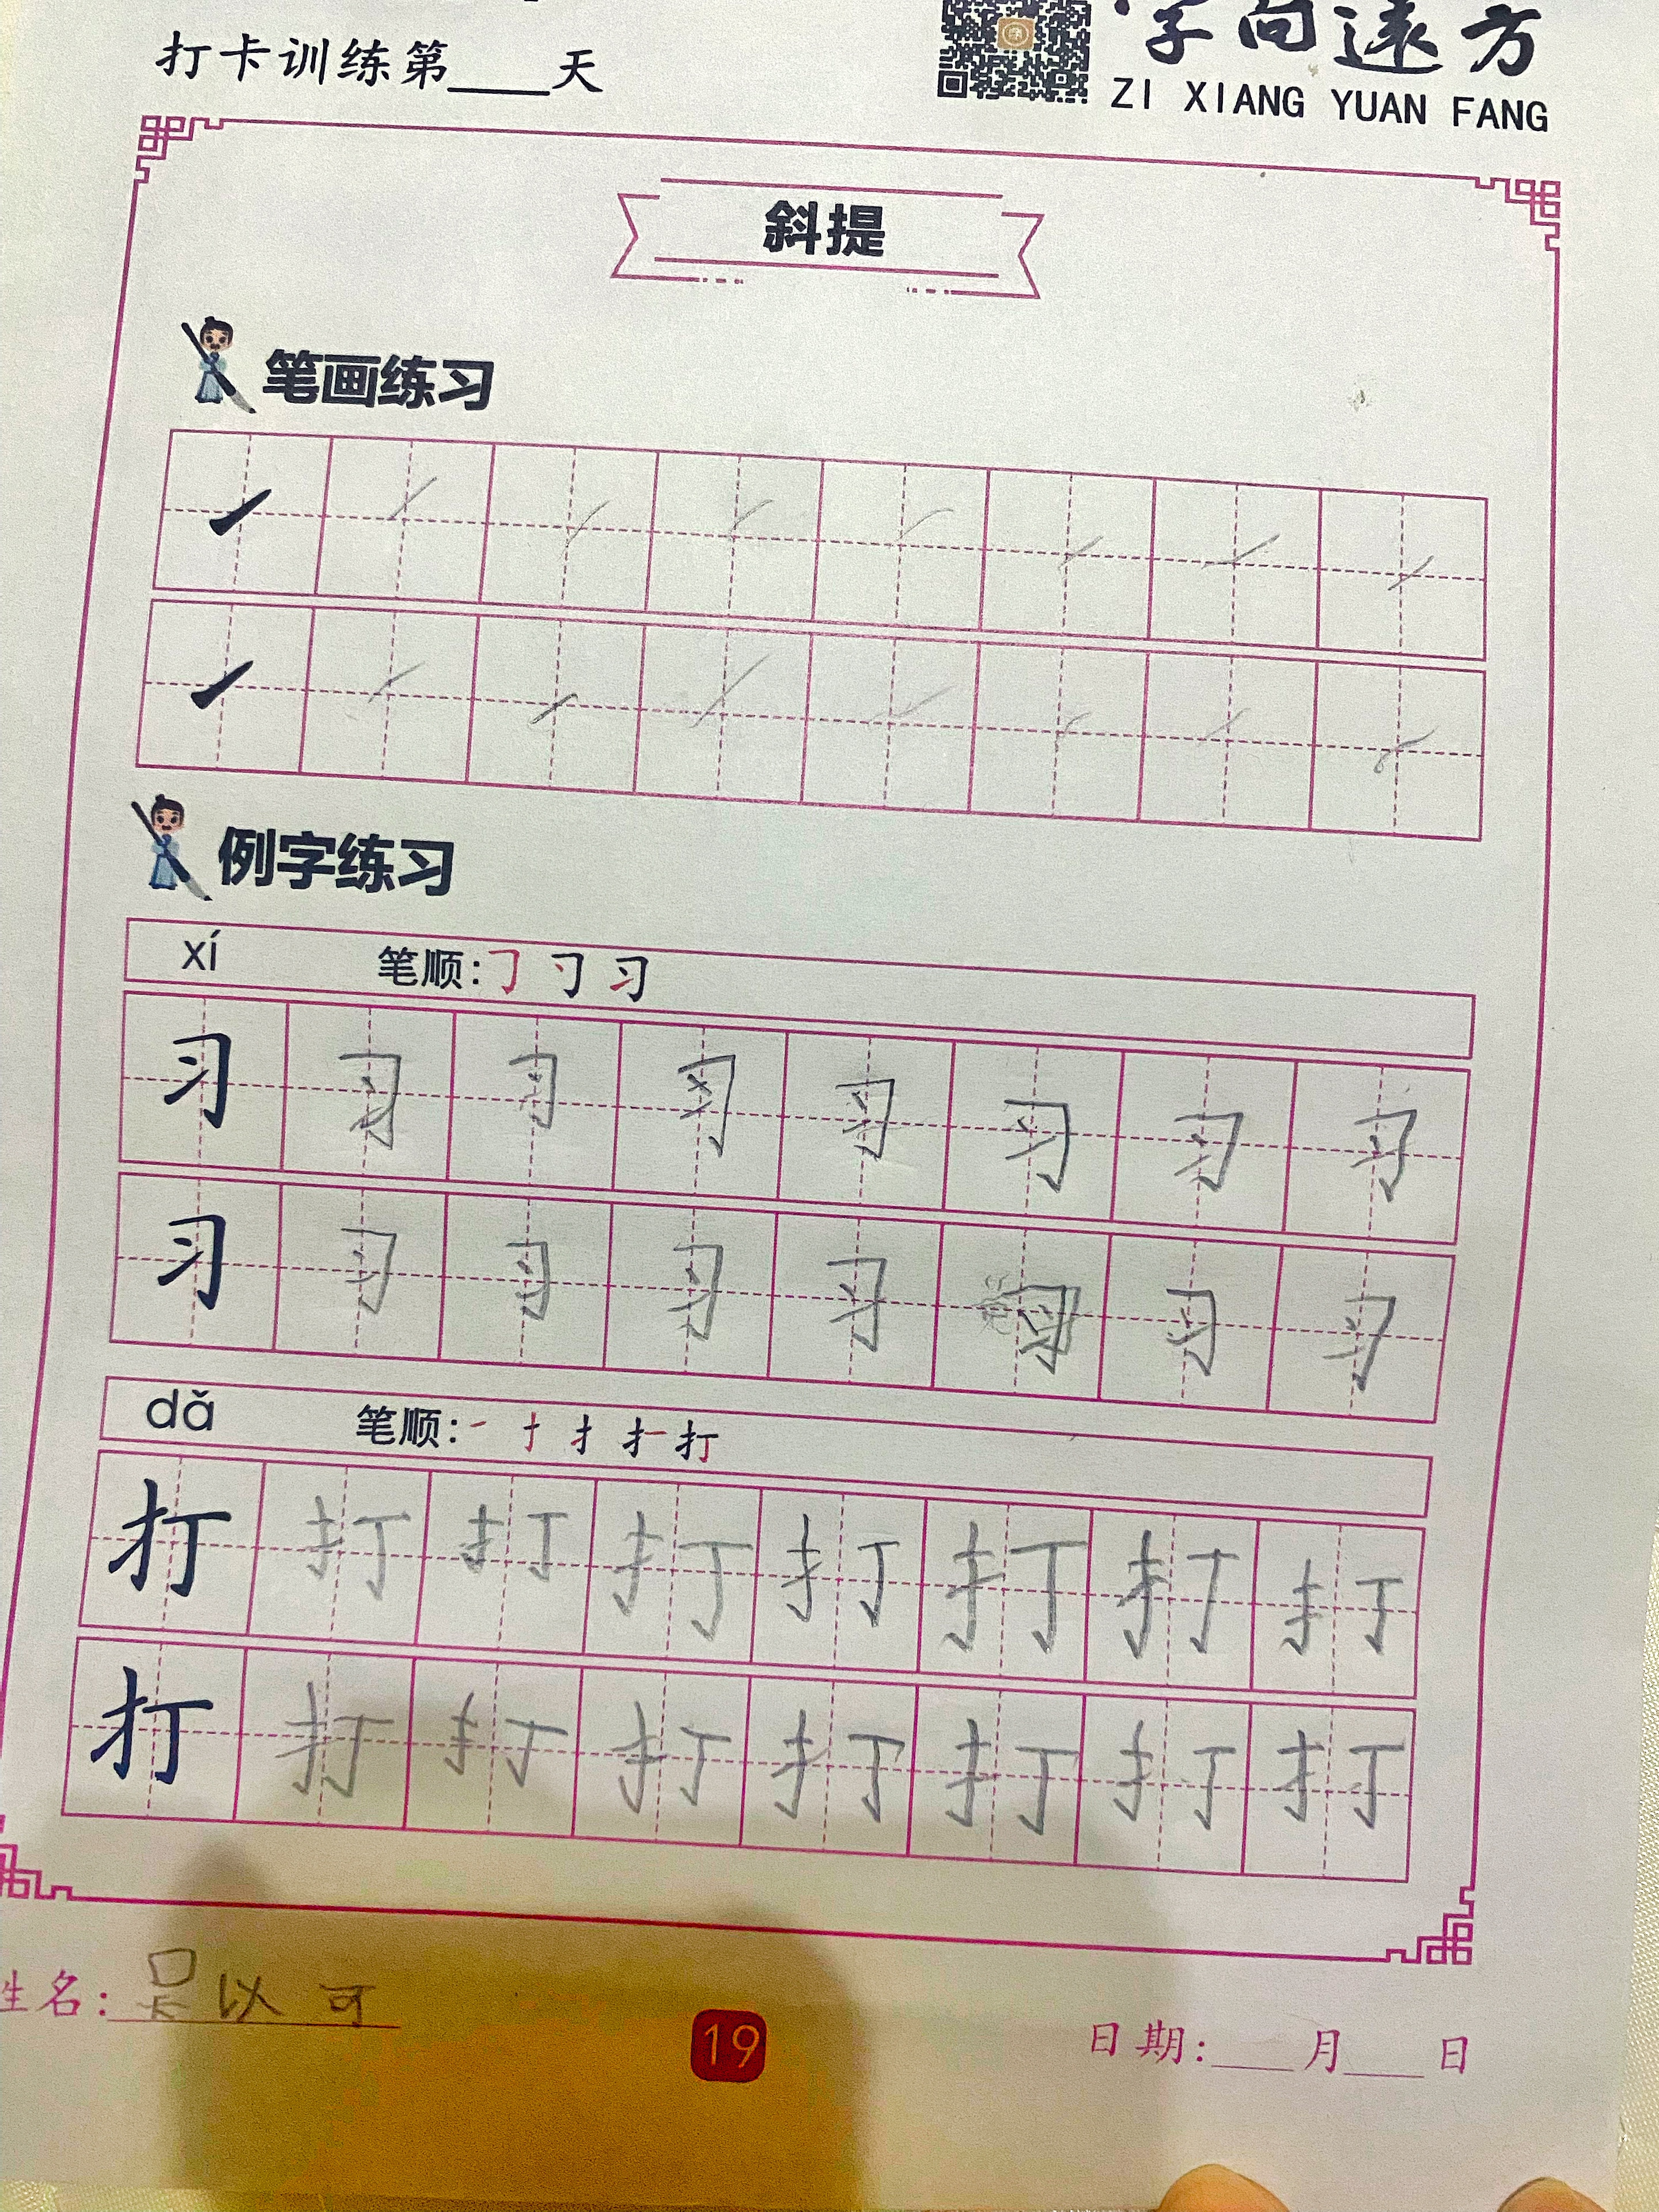 打卡训练第____天
字向远方
ZI XIANG YUAN FANG
斜提
笔画练习
例字练习
xí 笔顺:
习 习 习 习 习 习 习 习
习 习 习 习 习 习 习 习
dǎ 笔顺:
打 打 打 打 打 打 打 打
打 打 打 打 打 打 打 打
姓名: 吴以可
19
日期:____月____日